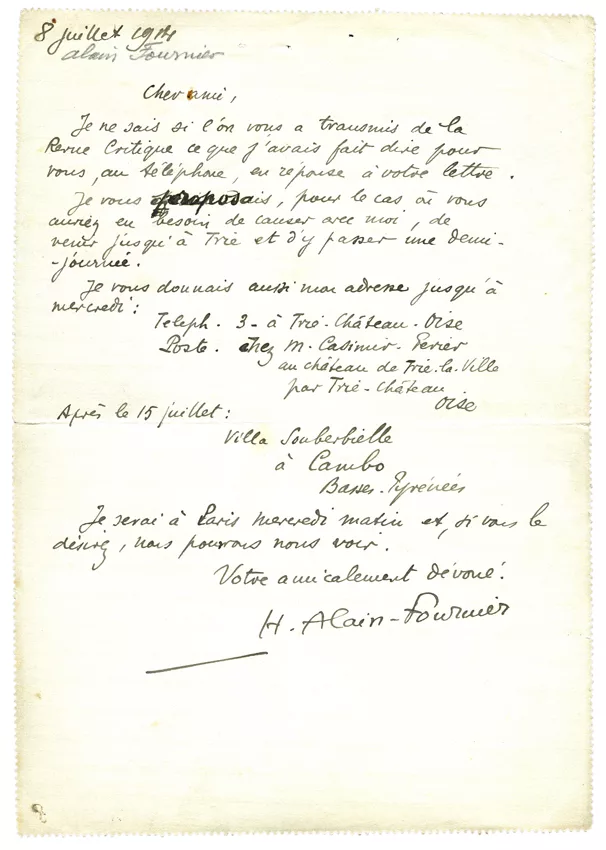 8 juillet 1914
Alain Fournier
Cher ami,
Je ne sais si l'on vous a transmis de la
Revue Critique ce que j'avais fait dire pour
vous, au téléphone, en réponse à votre lettre.
Je vous proposais, pour le cas où vous
auriez en besoin de causer avec moi, de
venir jusqu'à Trie et d'y passer une demi-
-journée.
Je vous donnais aussi mon adresse jusqu'à
mercredi :
Teleph. 3 - à Trie-Château. Oise
Poste. chez M. Casimir-Perier
au château de Trie-la-Ville
par Trie-Château
Oise
Après le 15 juillet :
Villa Souberbielle
à Cambo
Basses-Pyrénées
Je serai à Paris mercredi matin et, si vous le
désirez, nous pourrons nous voir.
Votre amicalement dévoué.
H. Alain-Fournier